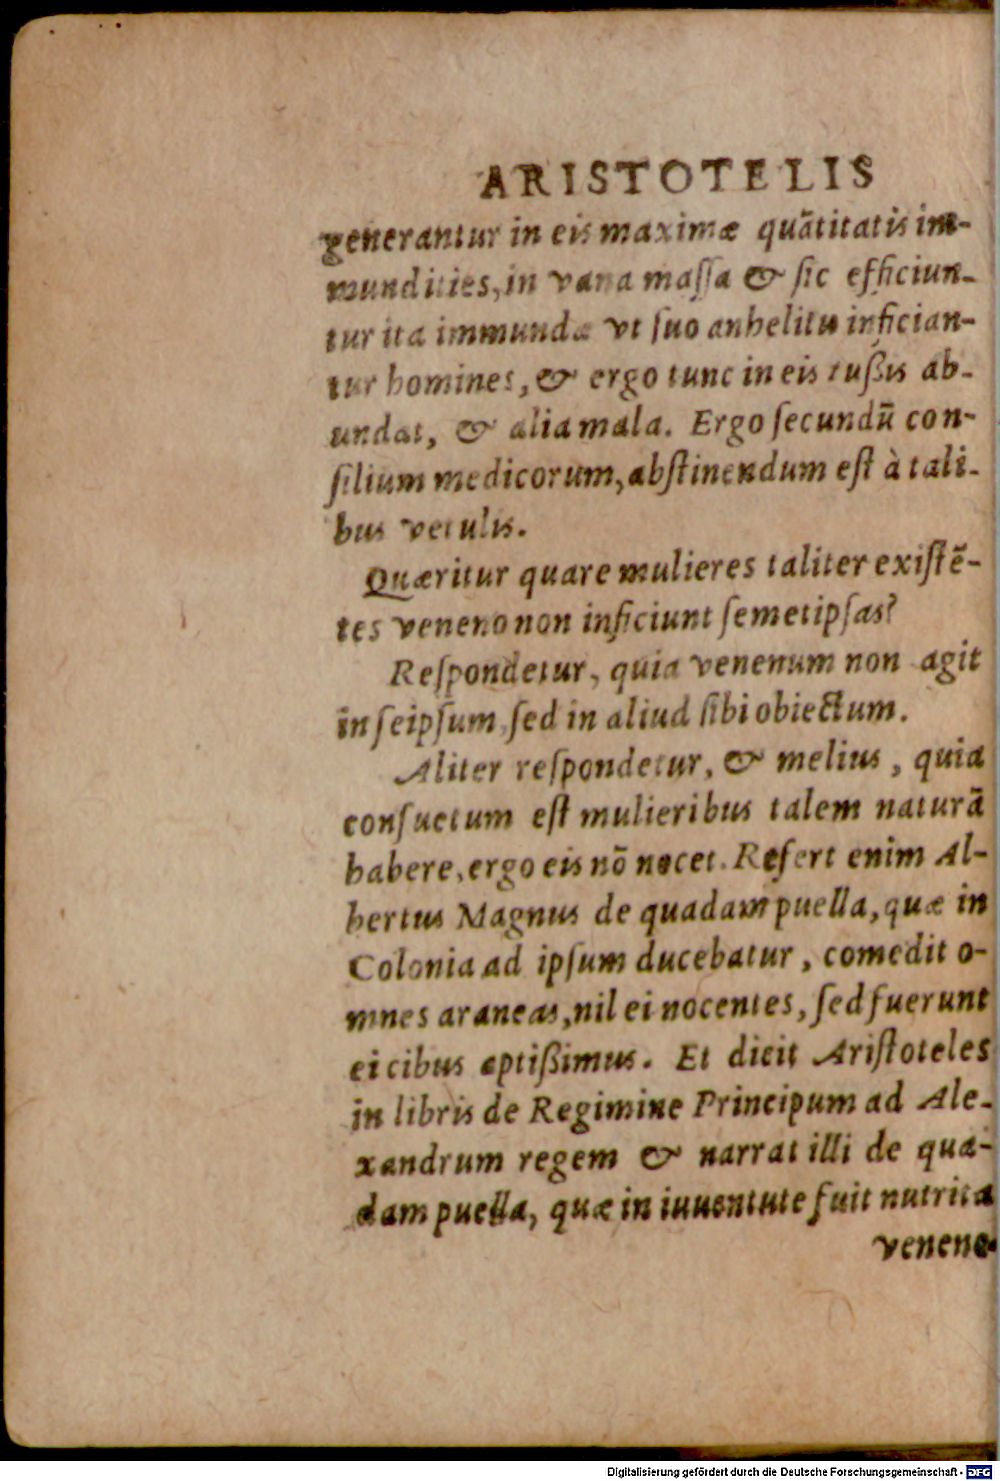 ARISTOTELIS
generantur in eis maximæ quãtitatis im-
mundities, in vana massa & sic efficiun-
tur ita immundæ vt suo anhelitu infician-
tur homines, & ergo tunc in eis tußis ab-
undat, & alia mala. Ergo secundũ con-
silium medicorum, abstinendum est à tali-
bus vetulis.
Quæritur quare mulieres taliter existẽ-
tes veneno non inficiunt semetipsas?
Respondetur, quia venenum non agit
in seipsum, sed in aliud sibi obiectum.
Aliter respondetur, & melius, quia
consuetum est mulieribus talem naturã
habere, ergo eis nõ nocet. Refert enim Al-
bertus Magnus de quadam puella, quæ in
Colonia ad ipsum ducebatur, comedit o-
mnes araneas, nil ei nocentes, sed fuerunt
ei cibus aptißimus. Et dicit Aristoteles
in libris de Regimine Principum ad Ale-
xandrum regem & narrat illi de qua-
dam puella, quæ in iuuentute fuit nutrita
veneno
Digitalisierung gefördert durch die Deutsche Forschungsgemeinschaft - DFG